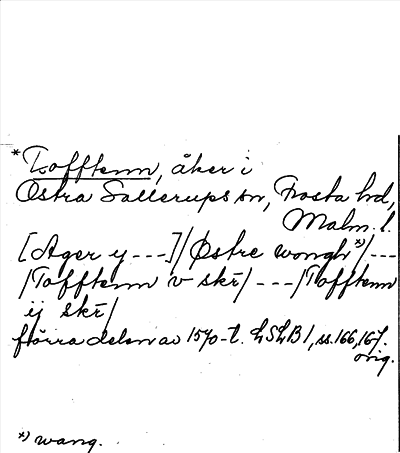 *Tofftenn, åker i
Östra Sallerups sn, Frosta hd,
Malm. l.
[Ager y ---]/Østre wongh *)/---
/Tofftenn v skr̄/---/Tofftenn
ij skr̄/
förra delen av 1570-t. LSLB 1, ss. 166, 167.
orig.
*) wang.